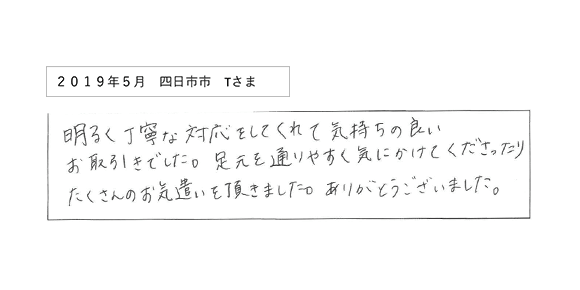 2019年5月 四日市市 Tさま
明るく丁寧な対応をしてくれて気持ちの良い
お取引きでした。足元を通りやすく気にかけてくださったり
たくさんのお気遣いを頂きました。ありがとうございました。